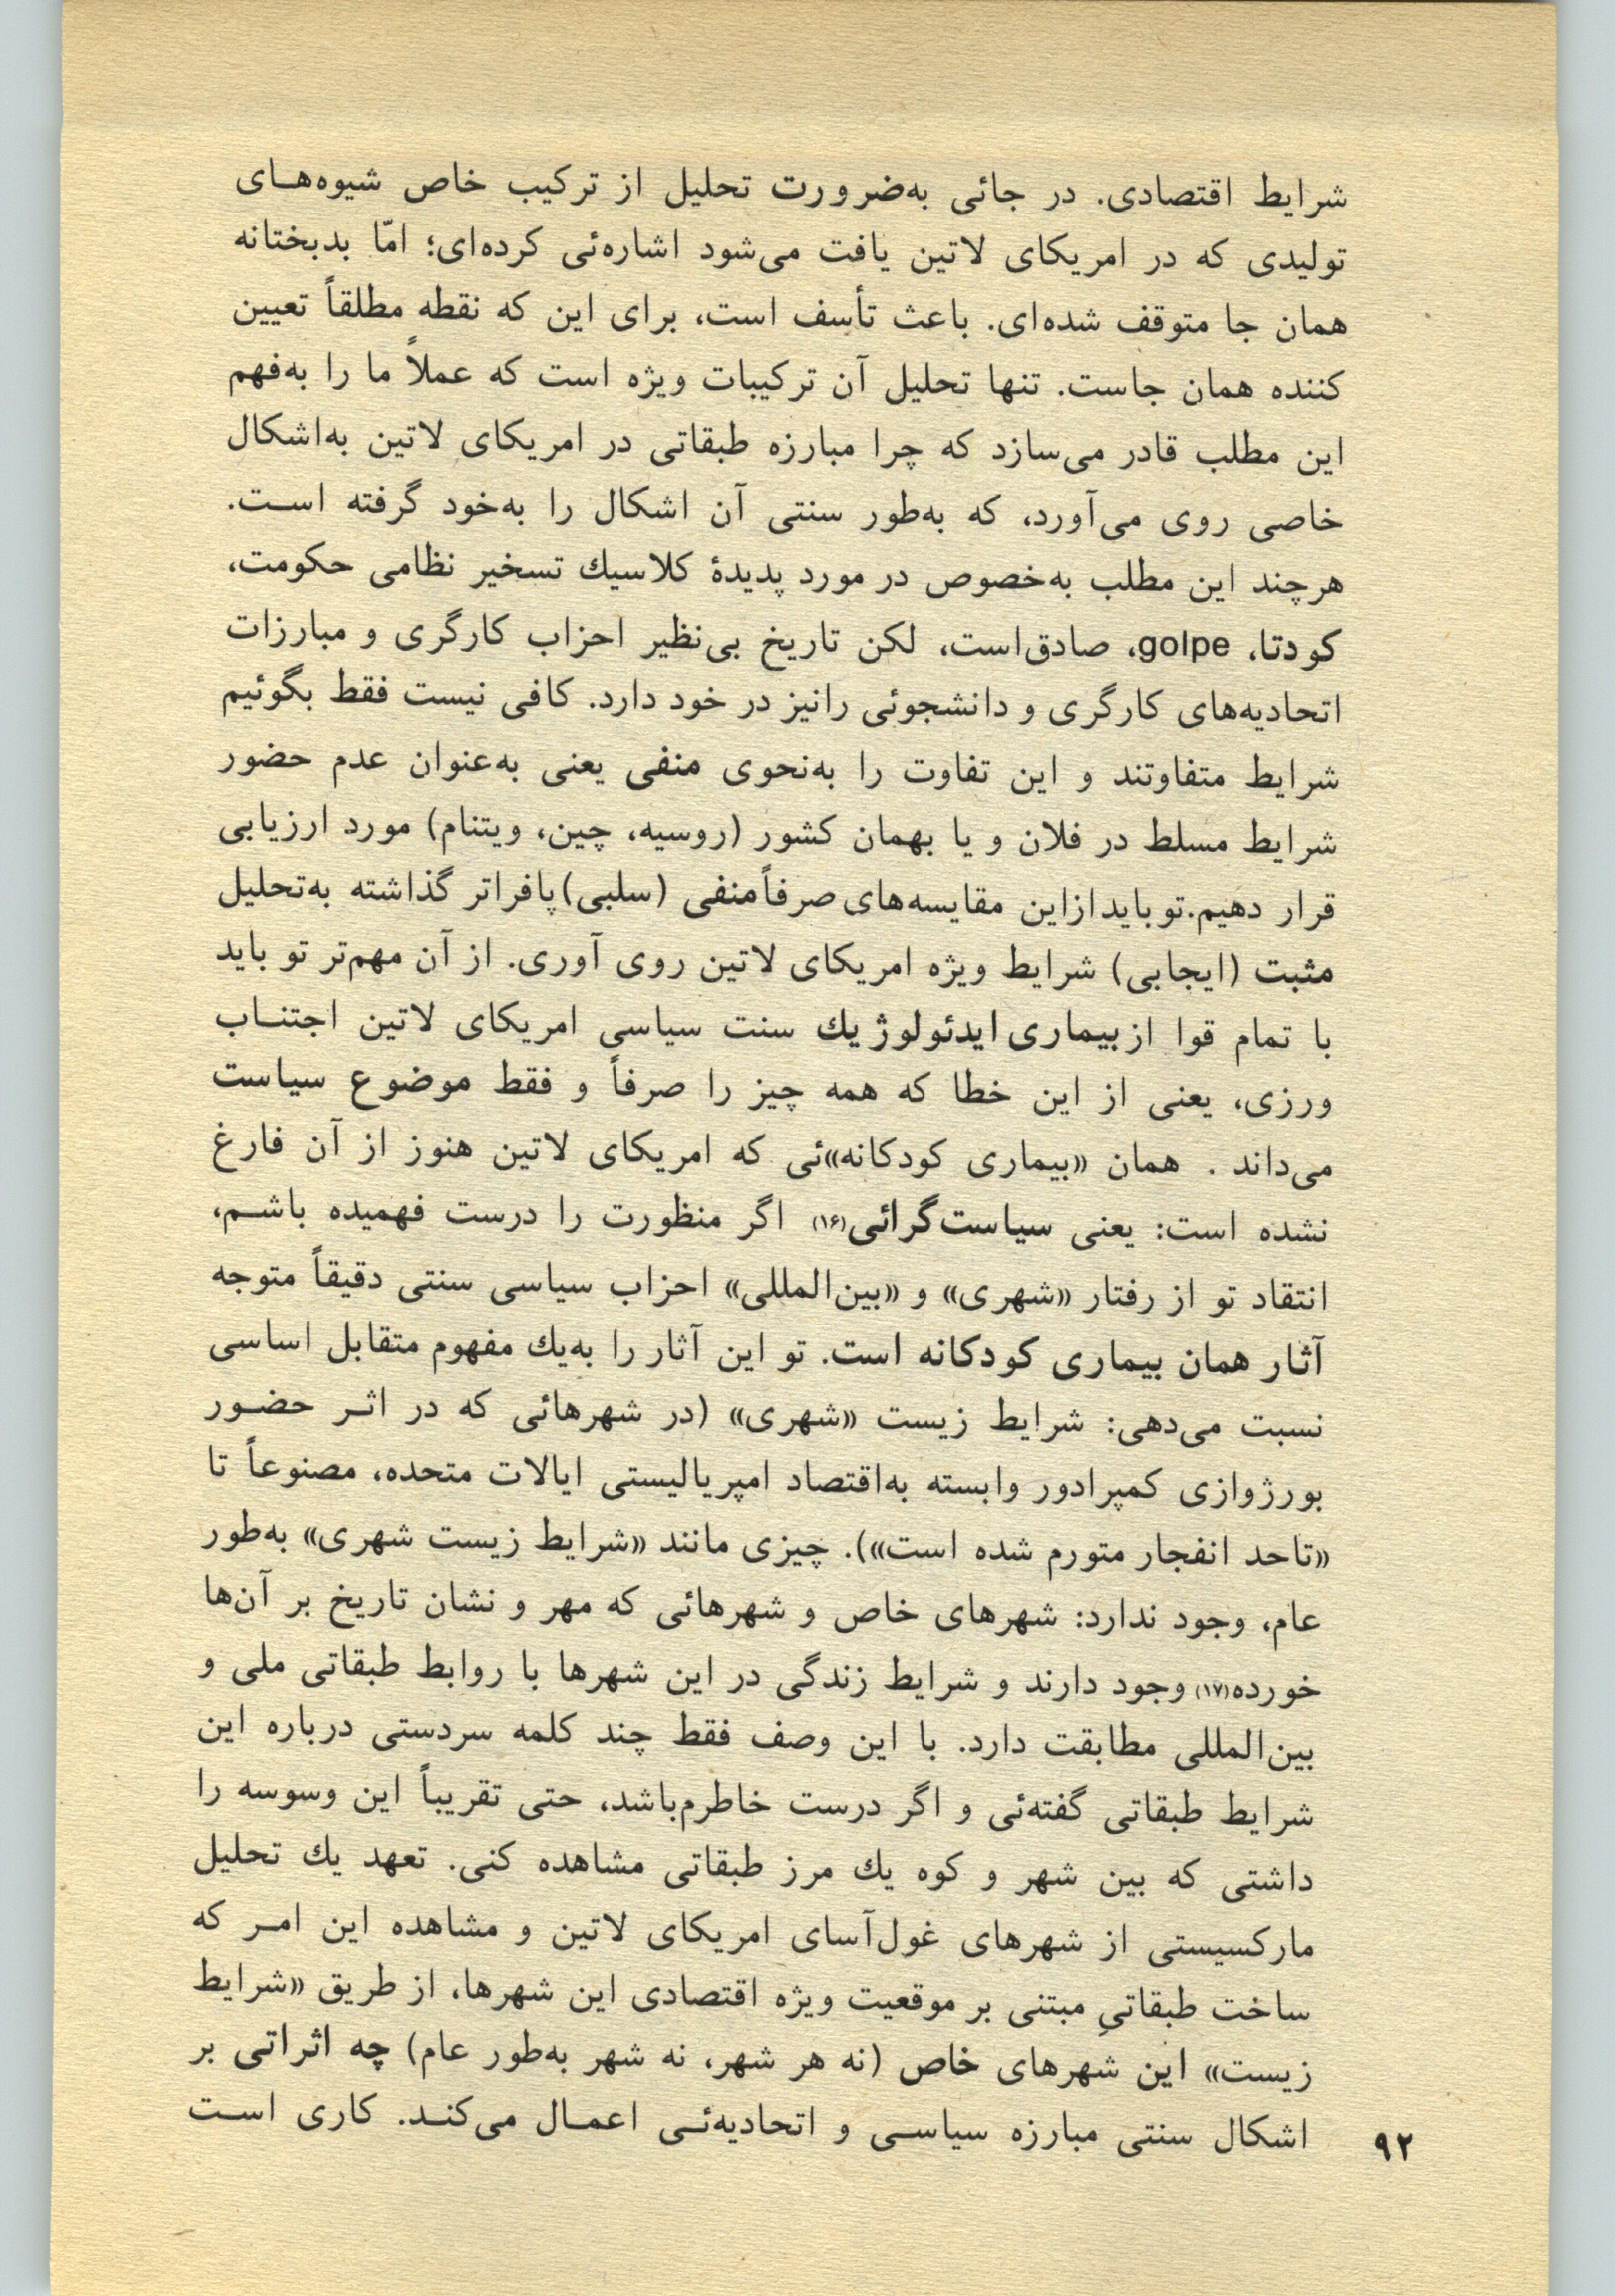 شرایط اقتصادی. در جائی به‌ضرورت تحلیل از ترکیب خاص شیوه‌هـای
تولیدی که در امریکای لاتین یافت می‌شود اشاره‌ئی کرده‌ای؛ امّا بدبختانه
همان جا متوقف شده‌ای. باعث تأسف است، برای این که نقطه مطلقاً تعیین
کننده همان جاست. تنها تحلیل آن ترکیبات ویژه است که عملاً ما را به‌فهم
این مطلب قادر می‌سازد که چرا مبارزه طبقاتی در امریکای لاتین به‌اشکال
خاصی روی می‌آورد، که به‌طور سنتی آن اشکال را به‌خود گرفته اسـت.
هرچند این مطلب به‌خصوص در مورد پدیدهٔ کلاسیك تسخیر نظامی حکومت،
کودتا، golpe، صادق‌است، لکن تاریخ بی‌نظیر احزاب کارگری و مبارزات
اتحادیه‌های کارگری و دانشجوئی رانیز در خود دارد. کافی نیست فقط بگوئیم
شرایط متفاوتند و این تفاوت را به‌نحوی منفی یعنی به‌عنوان عدم حضور
شرایط مسلط در فلان و یا بهمان کشور (روسیه، چین، ویتنام) مورد ارزیابی
قرار دهیم.تو باید ازاین مقایسه‌های صرفاًمنفی (سلبی)پافراتر گذاشته به‌تحلیل
مثبت (ایجابی) شرایط ویژه امریکای لاتین روی آوری. از آن مهم‌تر تو باید
با تمام قوا از بیماری ایدئولوژیك سنت سیاسی امریکای لاتین اجتنـاب
ورزی، یعنی از این خطا که همه چیز را صرفاً و فقط موضوع سیاست
می‌داند . همان «بیماری کودکانه»ئی که امریکای لاتین هنوز از آن فارغ
نشده است: یعنی سیاست‌گرائی(۱۶) اگر منظورت را درست فهمیده باشـم،
انتقاد تو از رفتار «شهری» و «بین‌المللی» احزاب سیاسی سنتی دقیقاً متوجه
آثار همان بیماری کودکانه است. تو این آثار را به‌یك مفهوم متقابل اساسی
نسبت می‌دهی: شرایط زیست «شهری» (در شهرهائی که در اثـر حضـور
بورژوازی کمپرادور وابسته به‌اقتصاد امپریالیستی ایالات متحده، مصنوعاً تا
«تاحد انفجار متورم شده است»). چیزی مانند «شرایط زیست شهری» به‌طور
عام، وجود ندارد: شهرهای خاص و شهرهائی که مهر و نشان تاریخ بر آن‌ها
خورده(۱۷) وجود دارند و شرایط زندگی در این شهرها با روابط طبقاتی ملی و
بین‌المللی مطابقت دارد. با این وصف فقط چند کلمه سردستی درباره این
شرایط طبقاتی گفته‌ئی و اگر درست خاطرم‌باشد، حتی تقریباً این وسوسه را
داشتی که بین شهر و کوه یك مرز طبقاتی مشاهده کنی. تعهد یك تحلیل
مارکسیستی از شهرهای غول‌آسای امریکای لاتین و مشاهده این امـر که
ساخت طبقاتیِ مبتنی بر موقعیت ویژه اقتصادی این شهرها، از طریق «شرایط
زیست» این شهرهای خاص (نه هر شهر، نه شهر به‌طور عام) چه اثراتی بر
اشکال سنتی مبارزه سیاسـی و اتحادیه‌ئـی اعمـال می‌کنـد. کاری اسـت
۹۲